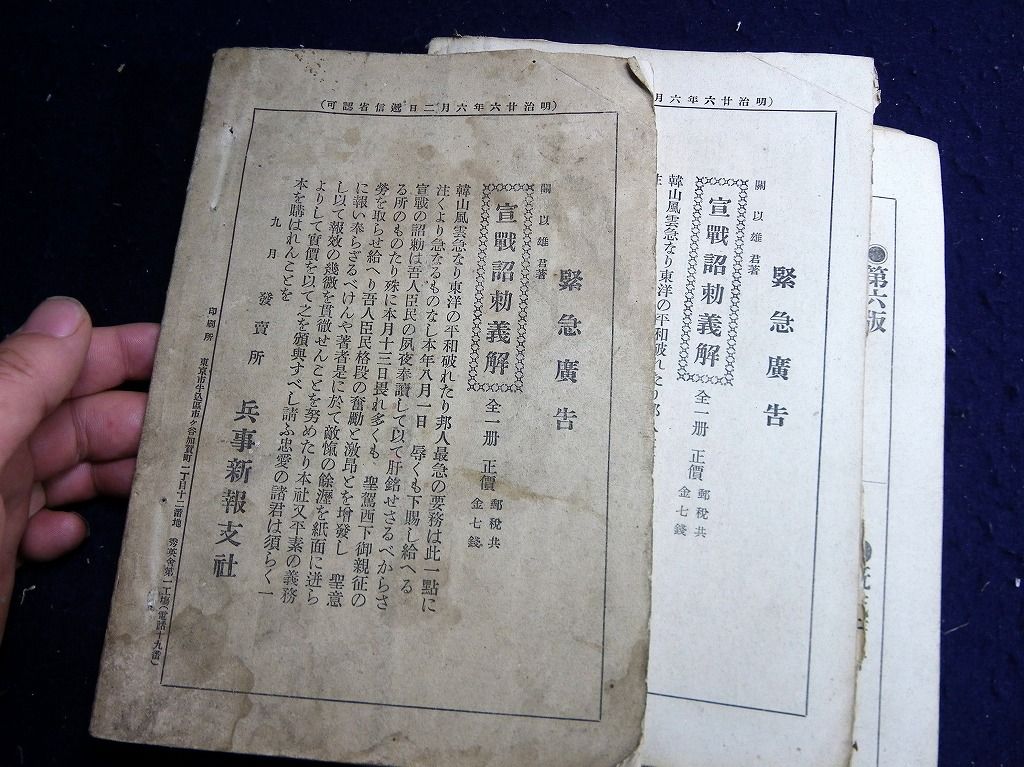 (明治廿六年六月二日遞信省認可)
緊急廣告
關以雄君著
宣戰詔勅義解
全一册 正價 郵稅共 金七錢
韓山風雲急なり東洋の平和破れたり邦人最急の要務は此一點に
注くより急なるものなし本年八月一日 辱くも下賜し給へる
宣戰の詔勅は吾人臣民の夙夜奉讀して以て肝銘せさるべからさ
る所のものたり殊に本月十三日畏れ多くも 聖駕西下御親征の
勞を取らせ給へり吾人臣民格段の奮勵と激昂とを增發し 聖意
に報い奉らざるべけんや著者是に於て敵愾の餘瀝を紙面に迸ら
し以て報效の幾微を貫徹せんことを努めたり本社又平素の義務
よりして實價を以て之を頒與すべし請ふ忠愛の諸君は須らく一
本を購はれんことを
九月
發賣所 兵事新報支社
印刷所 東京市牛込區市ヶ谷加賀町一丁目十二番地 秀英舍第一工場(電話十九番)
明治廿六年六月
緊急廣告
關以雄君著
宣戰詔勅義解
全一册 正價 郵稅共 金七錢
韓山風雲急なり東洋の平和破れたり邦人
●第六版